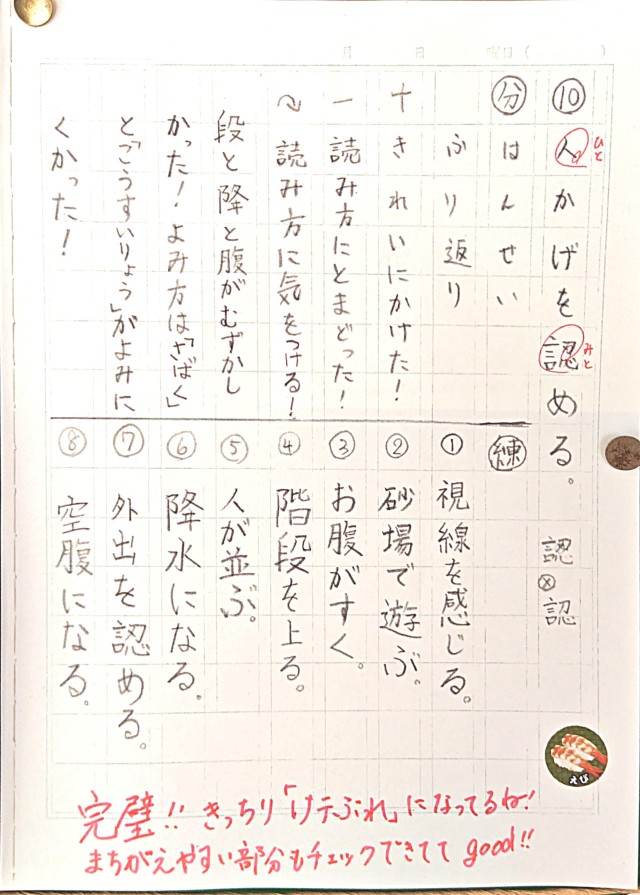 月 日 曜日( )
⑩ 人かげを認める。 認ⓧ認
ひと
みと
㊕分 はんせい
ふり返り
＋ きれいにかけた!
― 読み方にとまどった!
読み方に気をつける!
段と降と腹がむずかし
かった!よみ方は「さばく」
と「こうすいりょう」がよみに
くかった!
練
① 視線を感じる。
② 砂場で遊ぶ。
③ お腹がすく。
④ 階段を上る。
⑤ 人が並ぶ。
⑥ 降水になる。
⑦ 外出を認める。
⑧ 空腹になる。
えび
完璧!! きっちり「けテぶれ」になってるね!
まちがえやすい部分もチェックできてて good!!